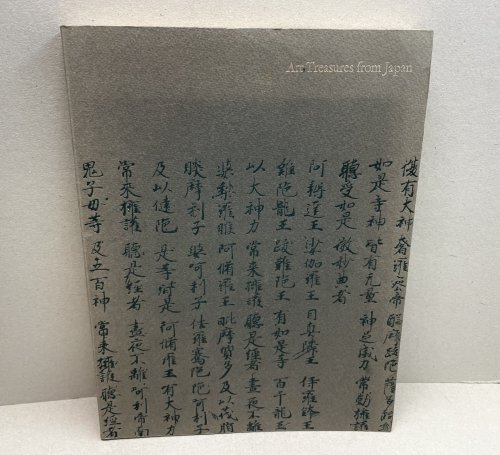 Art Treasures from Japan
復有大神 奢羅蜜帝 醯摩跋陀 薩多
如是等神 皆有无量 神足威力 常勤擁護
聽受如是 微妙典者
阿耨達王 娑伽羅王 目真隣王 伊羅鉢王
難陀龍王 跋難陀王 有如是等 百千龍王
以大神力 常來擁護 聽是經者 晝夜不離
婆利羅睺 阿脩羅王 毗摩質多 及以茂脂
睒摩利子 婆呵利子 佉羅騫陀
及以揵陀 是等皆是 阿脩羅王 有大神力
常來擁護 聽是經者 晝夜不離 訶利帝南
鬼子母等 及五百神 常來擁護 聽是經者